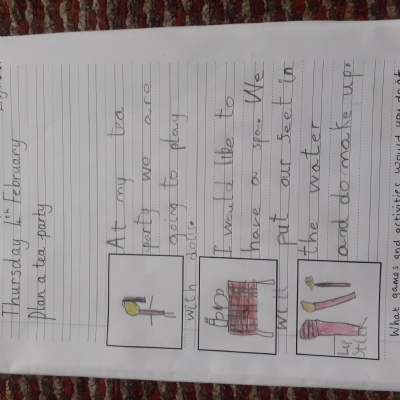 Thursday 4th February
Plan a tea party
At my tea
party we are
going to play
with dolls.
I would like to
have a spa. We
will put our seet in
the water
and do make up.
Lip
stick
What games and activities would you do at